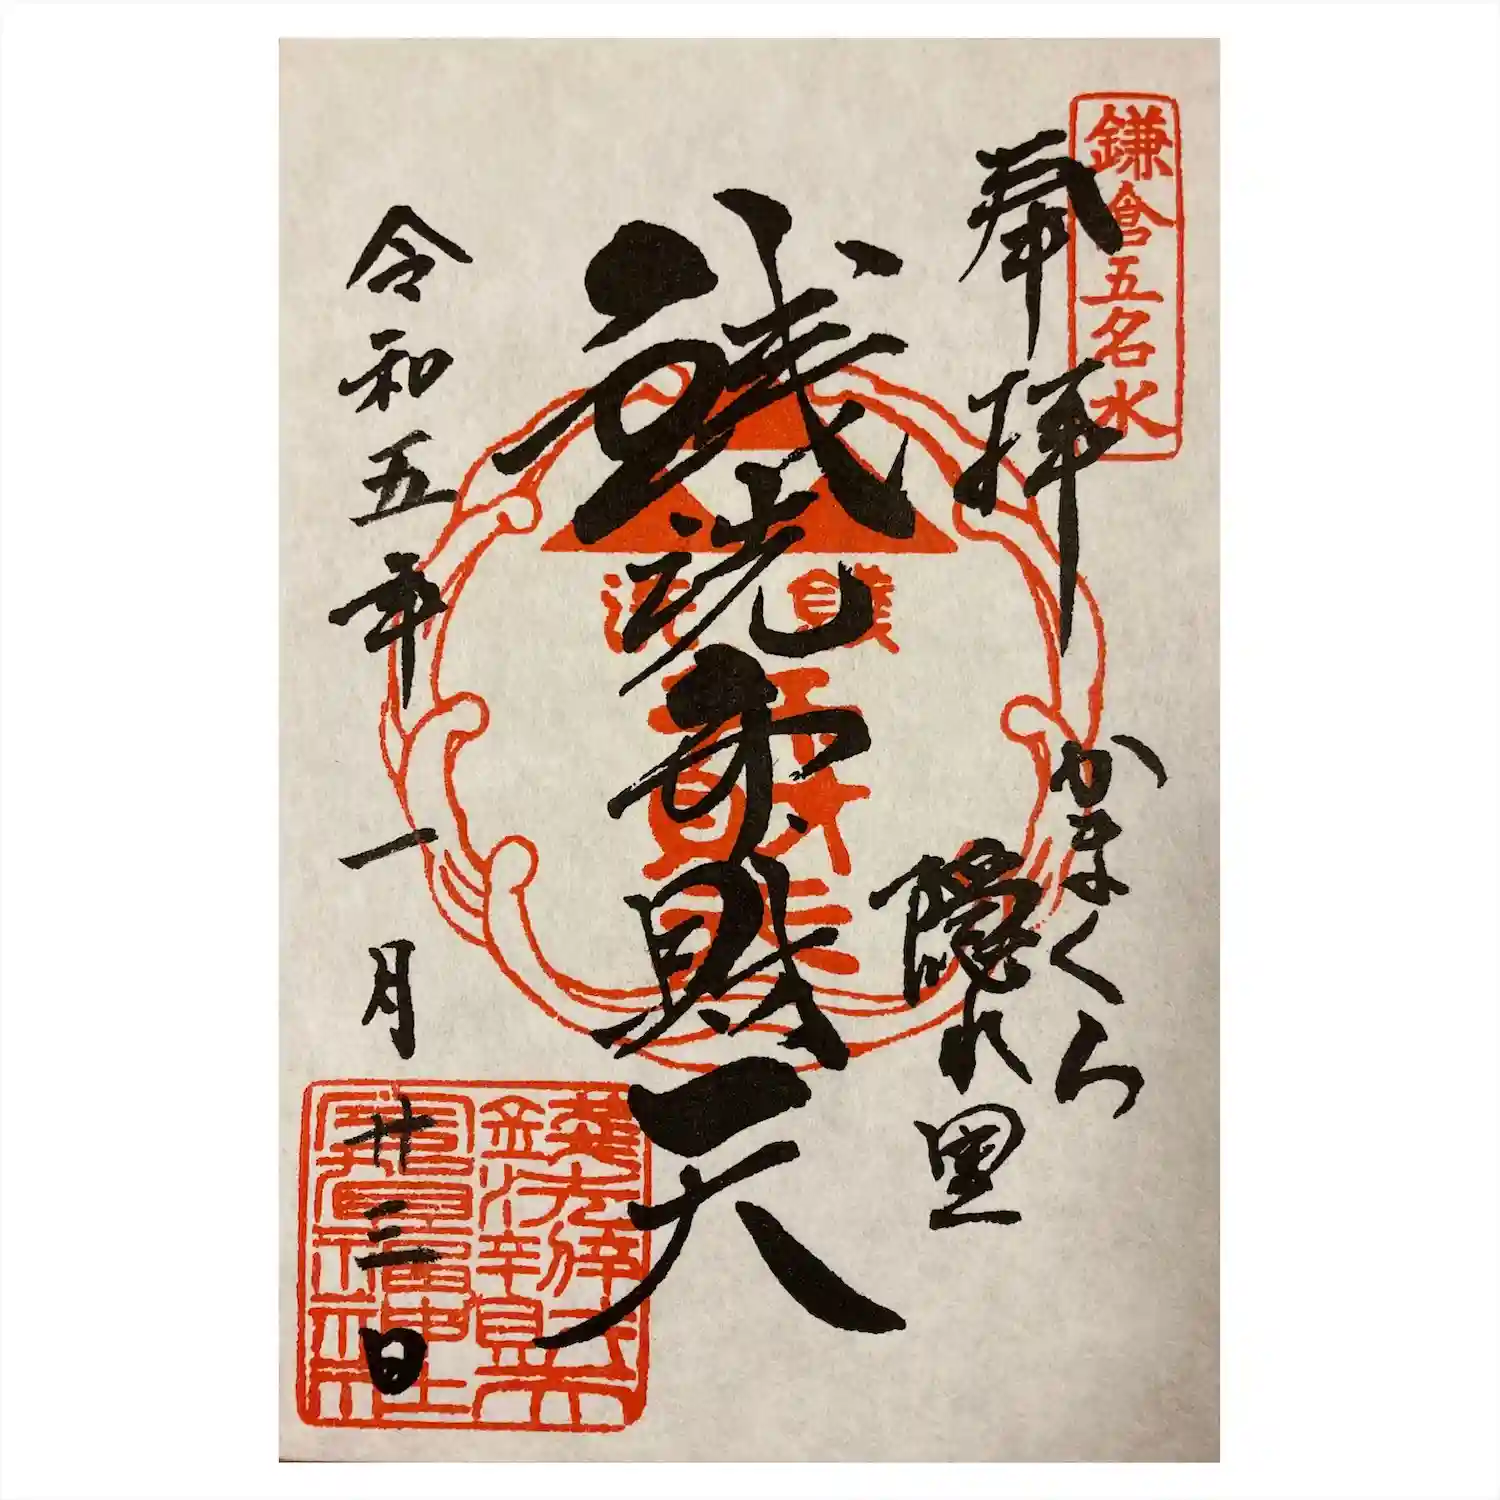 鎌倉五名水
奉拝
かまくら
隠れ里
銭洗弁財天
令和五年一月廿三日
銭洗